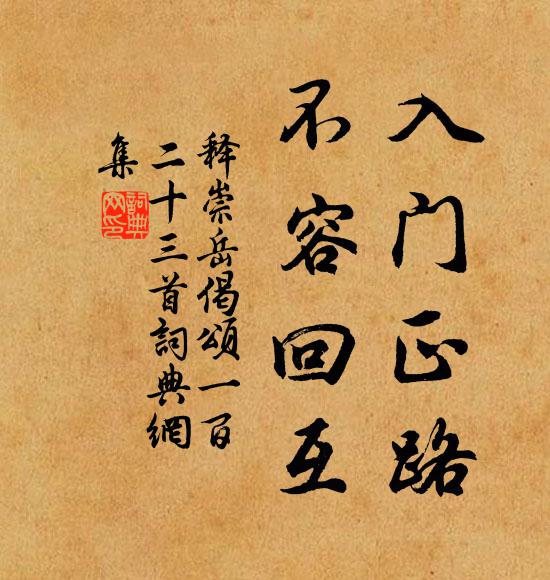 入门正路
不容回互
释崇岳偈颂一百
二十三首词典網
集
詞典
网印